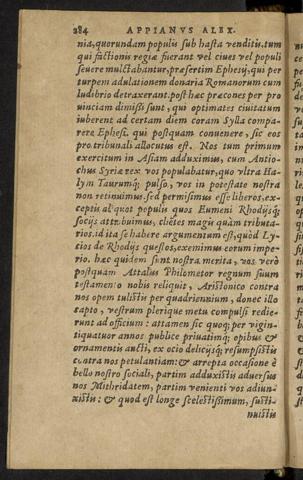 284 APPIANVS ALEX.
nia, quorundam populis sub hasta venditis, tum
qui factionis regiæ fuerant vel ciues vel populi
seuere mulctabantur, præsertim Ephesij, qui per
turpem adulationem donaria Romanorum cum
ludibrio detraxerant. post hæc præcones per pro
uinciam dimissi sunt, qui optimates ciuitatum
iuberent ad certam diem coram Sylla compa-
rere Ephesi. qui postquam conuenere, sic eos
pro tribunali allocutus est. Nos tum primum
exercitum in Asiam adduximus, cum Antio-
chus Syriæ rex vos populabatur, quo vltra Ha-
lym Taurumq; pulso, vos in potestate nostra
non retinuimus, sed permisimus esse liberos, ex-
ceptis aliquot populis quos Eumeni Rhodijsq;
socijs attribuimus, cliētes magis quàm tributa-
rios. id ita se habere argumentum est, quod Ly-
cios de Rhodijs questos, exemimus eorum impe-
rio. hæc quidem sunt nostra merita, vos verò
postquàm Attalus Philometor regnum suum
testamento nobis reliquit, Aristonico contra
nos opem tulistis per quadriennium, donec illo
capto, vestrum plerique metu compulsi redie-
runt ad officium: attamen sic quoq; per vigin-
tiquatuor annos publice priuatimq; opibus &
ornamentis aucti, ex ocio delicijsq; resumpsistis
contra nos petulantiam: & arrepta occasione è
bello nostro sociali, partim adduxistis aduersus
nos Mithridatem, partim venienti vos adiun-
xistis: & quod est longe scelestissimum, susti-
nuistis